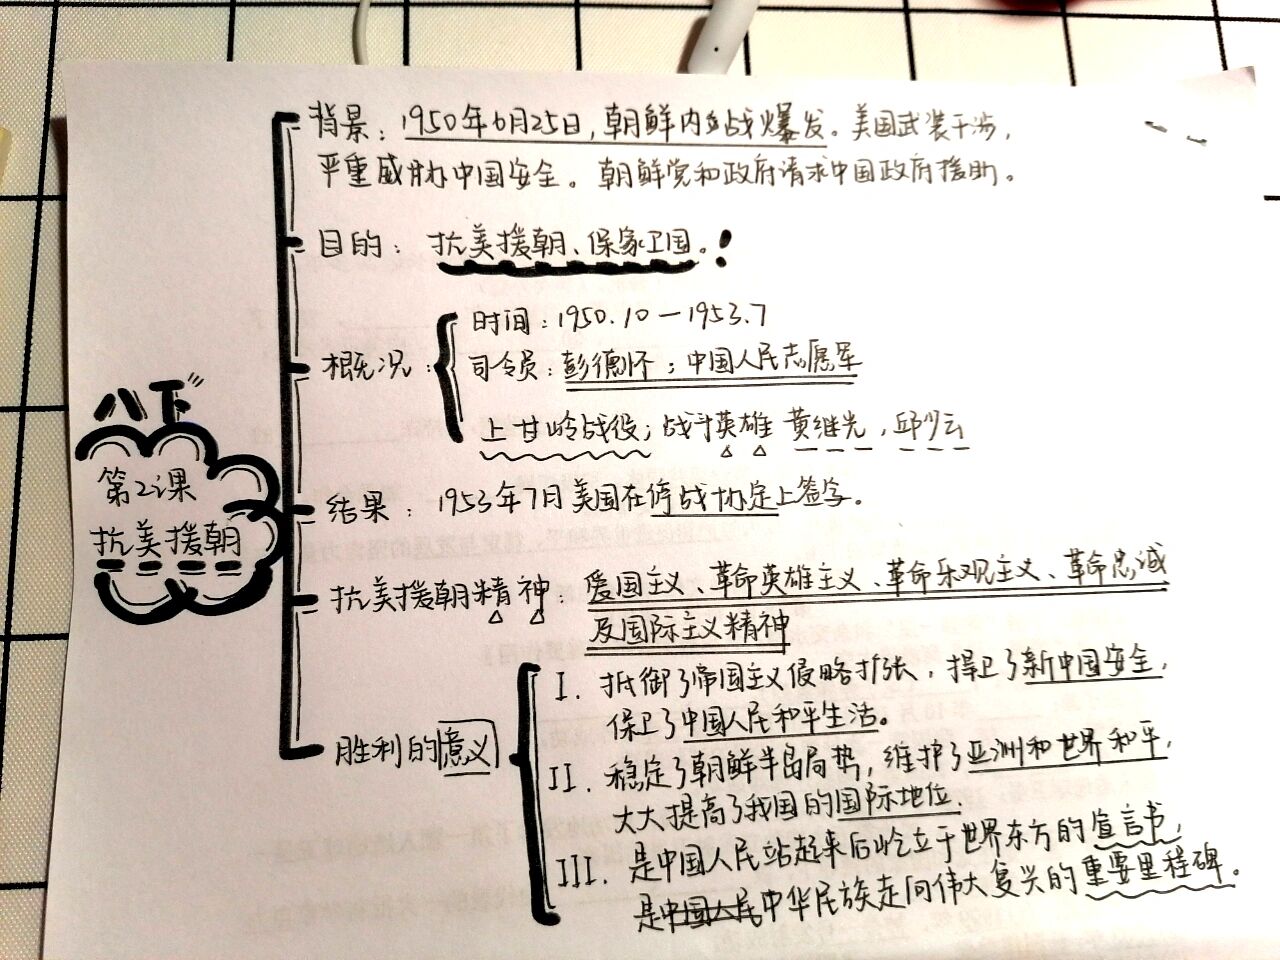 八下
第2课
抗美援朝
背景：1950年6月25日，朝鲜内战爆发。美国武装干涉，
严重威胁中国安全。朝鲜党和政府请求中国政府援助。
目的：抗美援朝、保家卫国。！
概况：
时间：1950.10—1953.7
司令员：彭德怀；中国人民志愿军
上甘岭战役；战斗英雄 黄继光，邱少云
结果：1953年7月美国在停战协定上签字。
抗美援朝精神：爱国主义、革命英雄主义、革命乐观主义、革命忠诚
及国际主义精神
胜利的意义
I. 抵御了帝国主义侵略扩张，捍卫了新中国安全，
保卫了中国人民和平生活。
II. 稳定了朝鲜半岛局势，维护了亚洲和世界和平，
大大提高了我国的国际地位.
III. 是中国人民站起来后屹立于世界东方的宣言书，
是中国人民中华民族走向伟大复兴的重要里程碑。